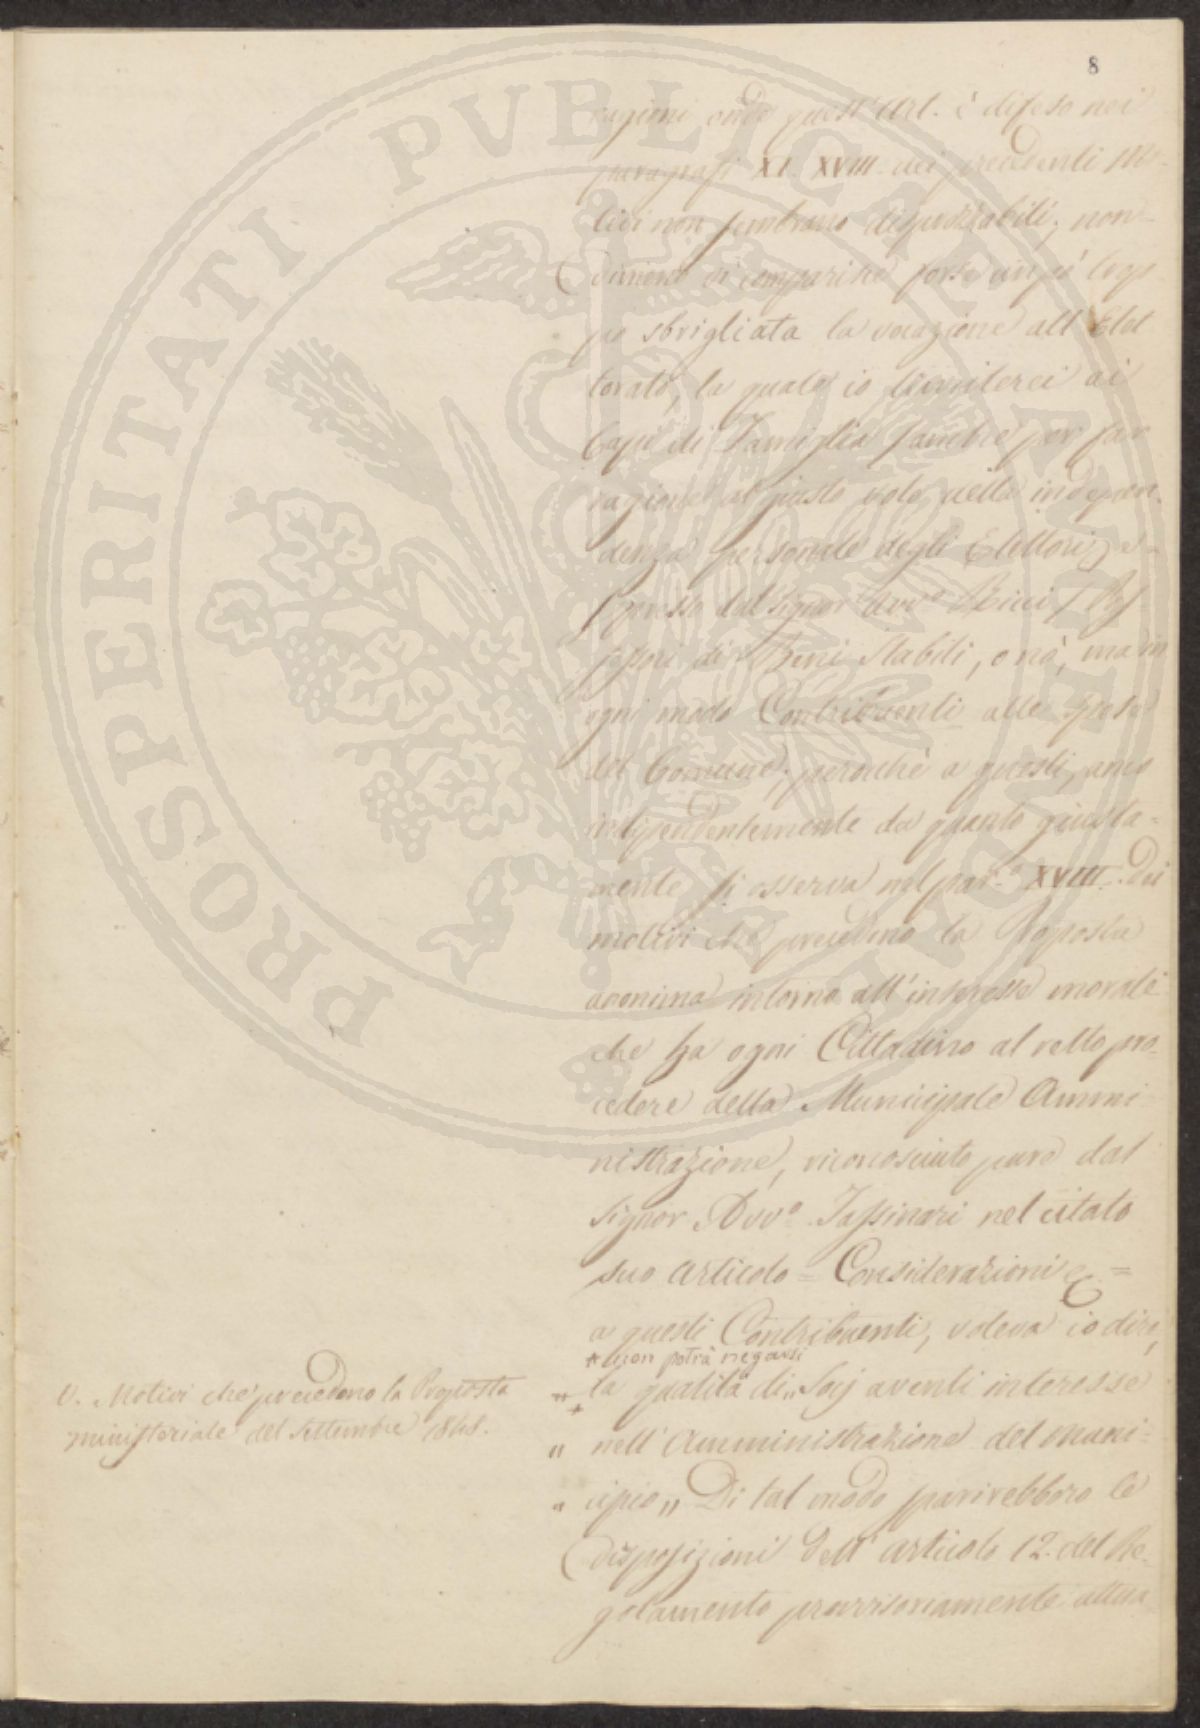 8
ragioni onde quest'Art. è difeso nei
paragrafi XI. XVIII. dei precedenti Mo-
tivi non sembrano disprezzabili; non-
dimeno vi comparisce forse un po' trop-
po sbrigliata la vocazione all'Elet
torato, la quale io limiterei ai
Capi di Famiglia sì perchè per far
ragione al giusto voto della indepen-
denza personale degli Elettori, e-
spresso dal Signor Avv.º Ricci / Pos
sessori di Beni Stabili, o nò, ma in
ogni modo Contribuenti alle spese
del Comune; perocchè a questi, anco
indipendentemente da quanto giusta-
mente si osserva nel par.º XVIII. Dei
motivi che precedono la Proposta
anonima intorno all'interesse morale
che ha ogni Cittadino al retto pro-
cedere della Municipale Ammi
nistrazione, riconosciuto pure dal
Signor Avv.º Tassinari nel citato
suo articolo = Considerazioni &. =
a questi Contribuenti, voleva io dire,
+ non potrà negarsi
V. Motivi che precedono la Proposta
ministeriale del Settembre 1848.
„ + la qualità di „ Socj aventi interesse
„ nell'Amministrazione del muni-
„ cipio „ Di tal modo sparirebbero le
disposizioni dell'articolo 12. del Re-
golamento provvisoriamente attua
PROSPERITATI PVBLICAE AVGENDAE